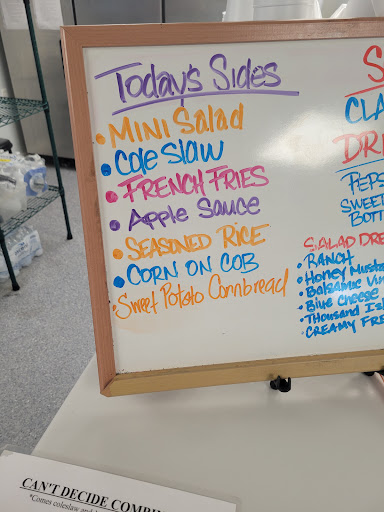 Today's Sides
• MINI Salad
• Cole Slaw
• FRENCH FRIES
• Apple Sauce
• SEASONED RICE
• CORN ON COB
• Sweet Potato Cornbread
S
CLA
DRE
PEPS
SWEET
BOTT
SALAD DRE
• RANCH
• Honey Musta
• Balsamic Vin
• Blue Cheese
• Thousand Isl
• CREAMY FRE
CAN'T DECIDE COMBI
*Comes coleslaw and